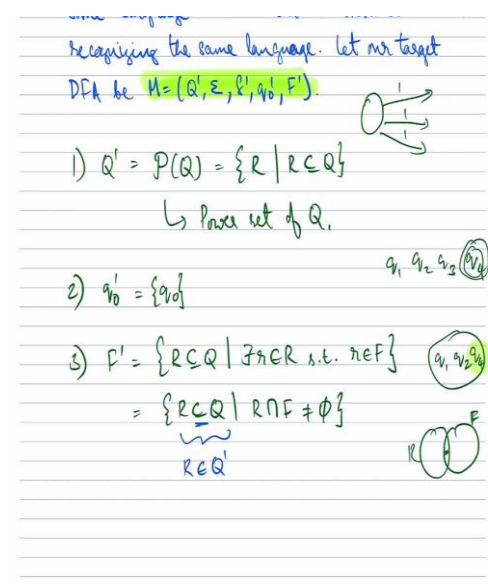 recognizing the same language. Let our target
DFA be M=(Q', Σ, δ', q₀', F').
1
1
1
1) Q' = P(Q) = {R | R⊆Q}
↳ Power set of Q.
q₁ q₂ q₃ q₄
2) q₀' = {q₀}
3) F' = {R⊆Q | ∃r∈R s.t. r∈F}
q₁ q₂ q₄
= {R⊆Q | R∩F ≠ ϕ}
F
R
R∈Q'